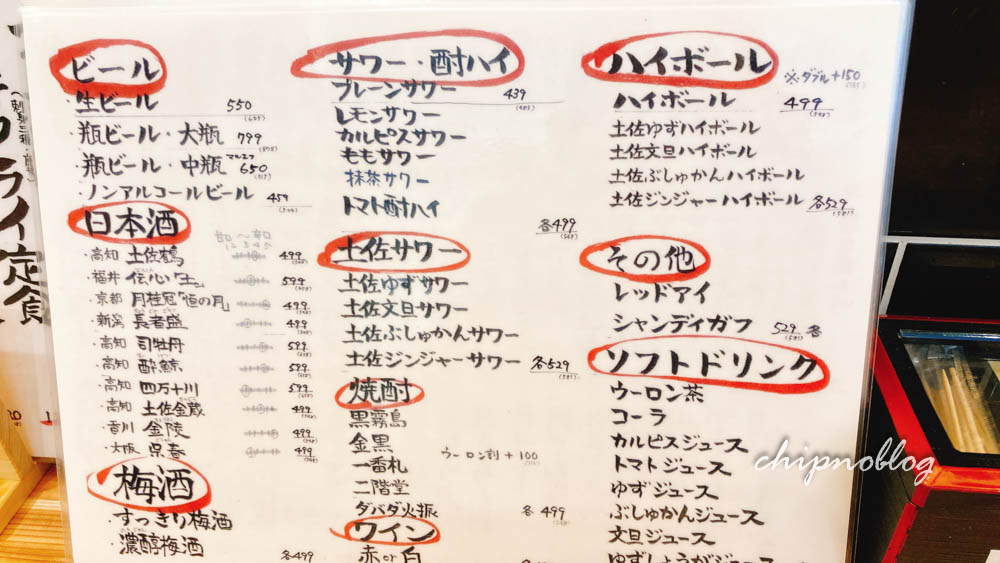 ビール
・生ビール 550
・瓶ビール・大瓶 799
・瓶ビール・中瓶 マルエフ 650
・ノンアルコールビール 459
日本酒
甘口〜辛口
1 2 3 4 5
・高知 土佐鶴 499
・福井 伝心「生」 599
・京都 月桂冠「恒の月」 499
・新潟 長者盛 499
・高知 司牡丹 599
・高知 酔鯨 599
・高知 四万十川 599
・高知 土佐金蔵 499
・香川 金陵 499
・大阪 呉春 499
梅酒
・すっきり梅酒
・濃醇梅酒
各499
サワー・酎ハイ
プレーンサワー 439
レモンサワー
カルピスサワー
ももサワー
抹茶サワー
トマト酎ハイ
各499
土佐サワー
土佐ゆずサワー
土佐文旦サワー
土佐ぶしゅかんサワー
土佐ジンジャーサワー 各529
焼酎
黒霧島
金黒
一番札 ウーロン割+100
二階堂
ダバダ火振 各499
ワイン
赤or白
ハイボール
※ダブル+150
ハイボール 499
土佐ゆずハイボール
土佐文旦ハイボール
土佐ぶしゅかんハイボール
土佐ジンジャーハイボール 各529
その他
レッドアイ
シャンディガフ 529 各
ソフトドリンク
ウーロン茶
コーラ
カルピスジュース
トマトジュース
ゆずジュース
ぶしゅかんジュース
文旦ジュース
ゆずしょうがジュース
chipnoblog